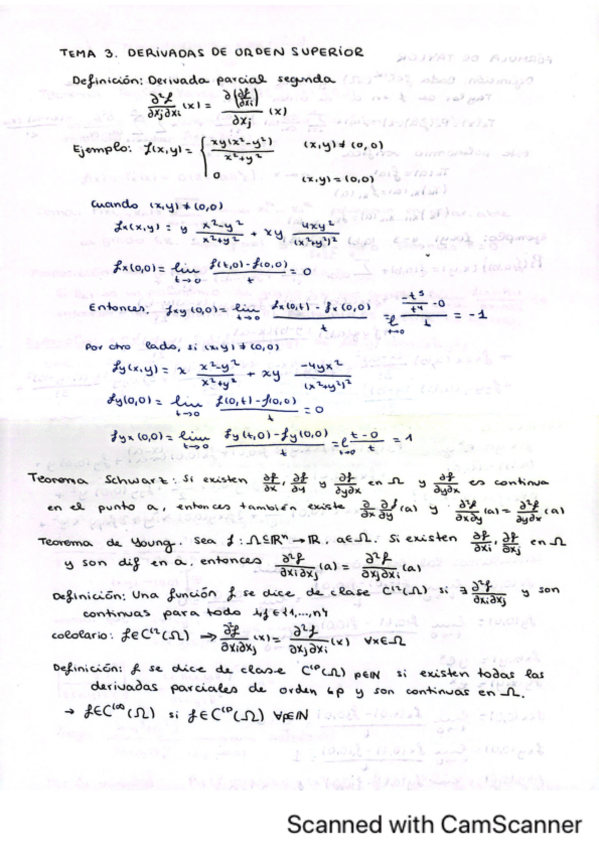 TEMA 3. DERIVADAS DE ORDEN SUPERIOR
Definición: Derivada parcial segunda
∂²f/∂xj∂xi (x) = ∂(∂f/∂xi)/∂xj (x)
Ejemplo: f(x,y) = { xy(x²-y²)/x²+y² (x,y) ≠ (0,0)
0 (x,y) = (0,0)
Cuando (x,y) ≠ (0,0)
fx(x,y) = y x²-y²/x²+y² + xy 4xy²/(x²+y²)²
fx(0,0) = lim t→0 f(t,0)-f(0,0)/t = 0
Entonces, fxy(0,0) = lim t→0 fx(0,t)-fx(0,0)/t = l t→0 -t⁵/t⁴ -0/t = -1
Por otro lado, si (x,y) ≠ (0,0)
fy(x,y) = x x²-y²/x²+y² + xy -4yx²/(x²+y²)²
fy(0,0) = lim t→0 f(0,t)-f(0,0)/t = 0
fyx(0,0) = lim t→0 fy(t,0)-fy(0,0)/t = l t→0 t-0/t = 1
Teorema Schwartz: Si existen ∂f/∂x, ∂f/∂y y ∂²f/∂y∂x en Ω y ∂²f/∂y∂x es continua
en el punto a, entonces también existe ∂/∂x ∂f/∂y (a) y ∂²f/∂x∂y (a) = ∂²f/∂y∂x (a)
Teorema de Young. Sea f: Ω⊆ℝⁿ→ℝ, a∈Ω. Si existen ∂f/∂xi, ∂f/∂xj en Ω
y son dif en a, entonces ∂²f/∂xi∂xj (a) = ∂²f/∂xj∂xi (a)
Definición: Una función f se dice de clase C⁽²(Ω) si ∃ ∂²f/∂xi∂xj y son
continuas para todo i,j ∈ {1,...,n}
cololario: f∈C⁽²(Ω) → ∂²f/∂xi∂xj (x) = ∂²f/∂xj∂xi (x) ∀x∈Ω
Definición: f se dice de clase C⁽ᵖ(Ω) p∈ℕ si existen todas las
derivadas parciales de orden ≤p y son continuas en Ω.
→ f∈C⁽∞(Ω) si f∈C⁽ᵖ(Ω) ∀p∈ℕ
Scanned with CamScanner